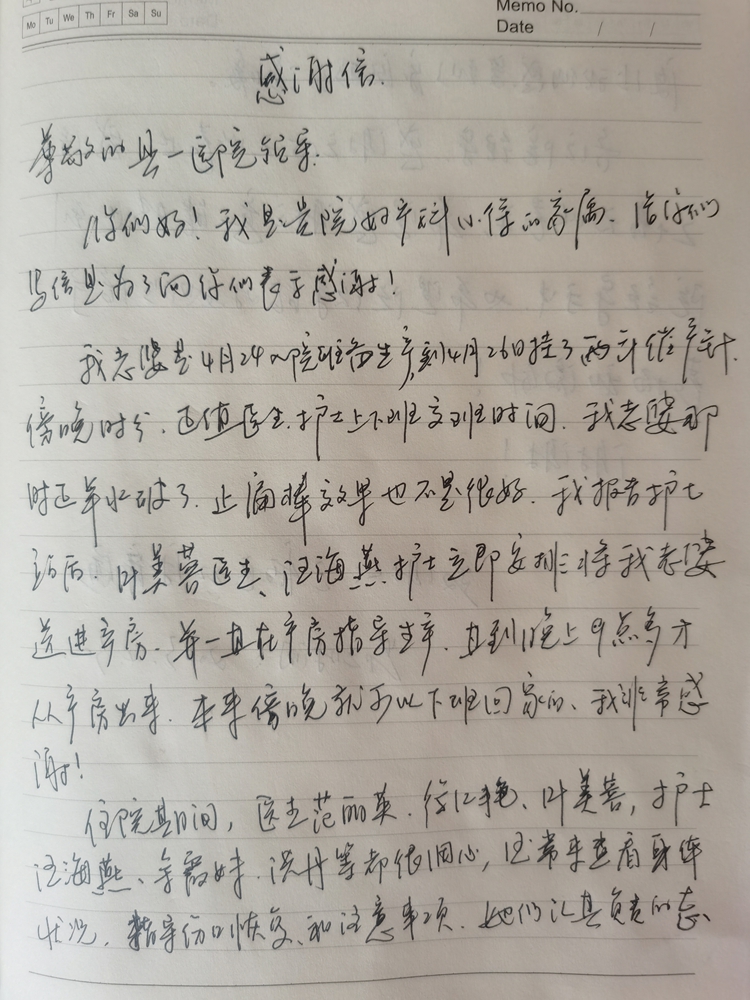 Mo Tu We Th Fr Sa Su
Memo No.
Date / /
感谢信.
尊敬的县一医院领导.
你们好！我是贵院妇产科小徐的家属. 给你们
写信是为了向你们表示感谢！
我老婆是4月24入院准备生产,到4月26日挂了两针催产针.
傍晚时分. 正值医生.护士上下班交班时间. 我老婆那
时还羊水破了. 止痛棒效果也不是很好. 我报告护士
站后. 叶美蓉医生、汪海燕护士立即安排将我老婆
送进产房. 并一直在产房指导生产. 直到晚上9点多才
从产房出来. 本来傍晚就可以下班回家的、我非常感
谢！
住院期间, 医生范丽英. 徐红艳、叶美蓉, 护士
汪海燕、余敏妹. 洪丹等都很细心, 还常来查看身体
状况, 指导伤口恢复、和注意事项. 她们认真负责的态